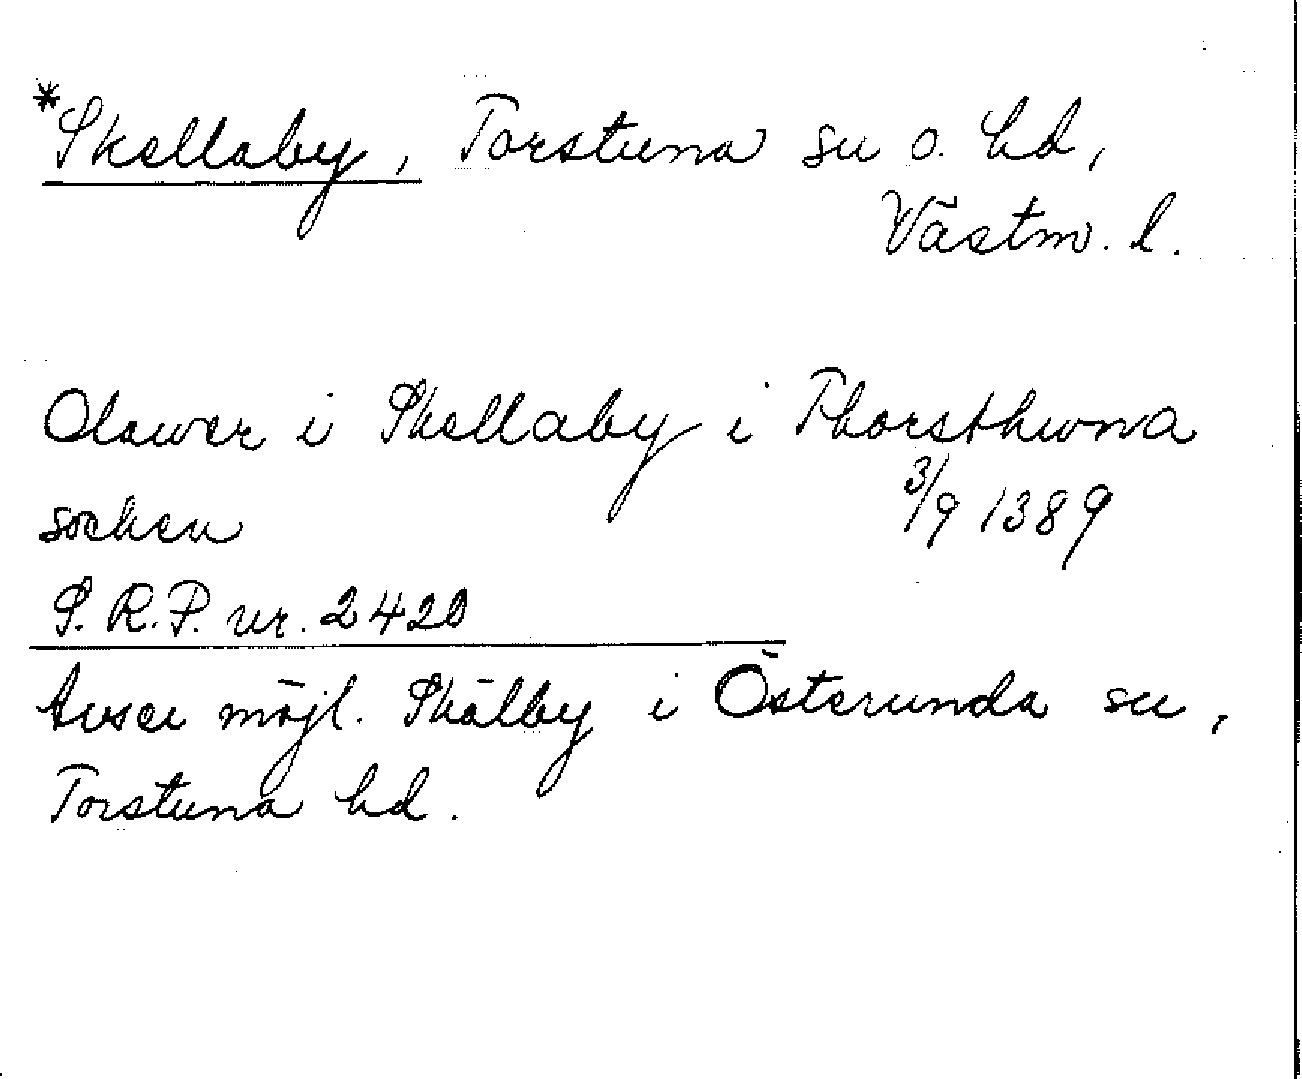 *Skellaby, Torstuna sn o. hd,
Västm. l.
Olawer i Skellaby i Thorsthwna
3/9 1389
sochen
S. R. P. nr. 2420
Avser möjl. Skälby i Österunda sn,
Torstuna hd.